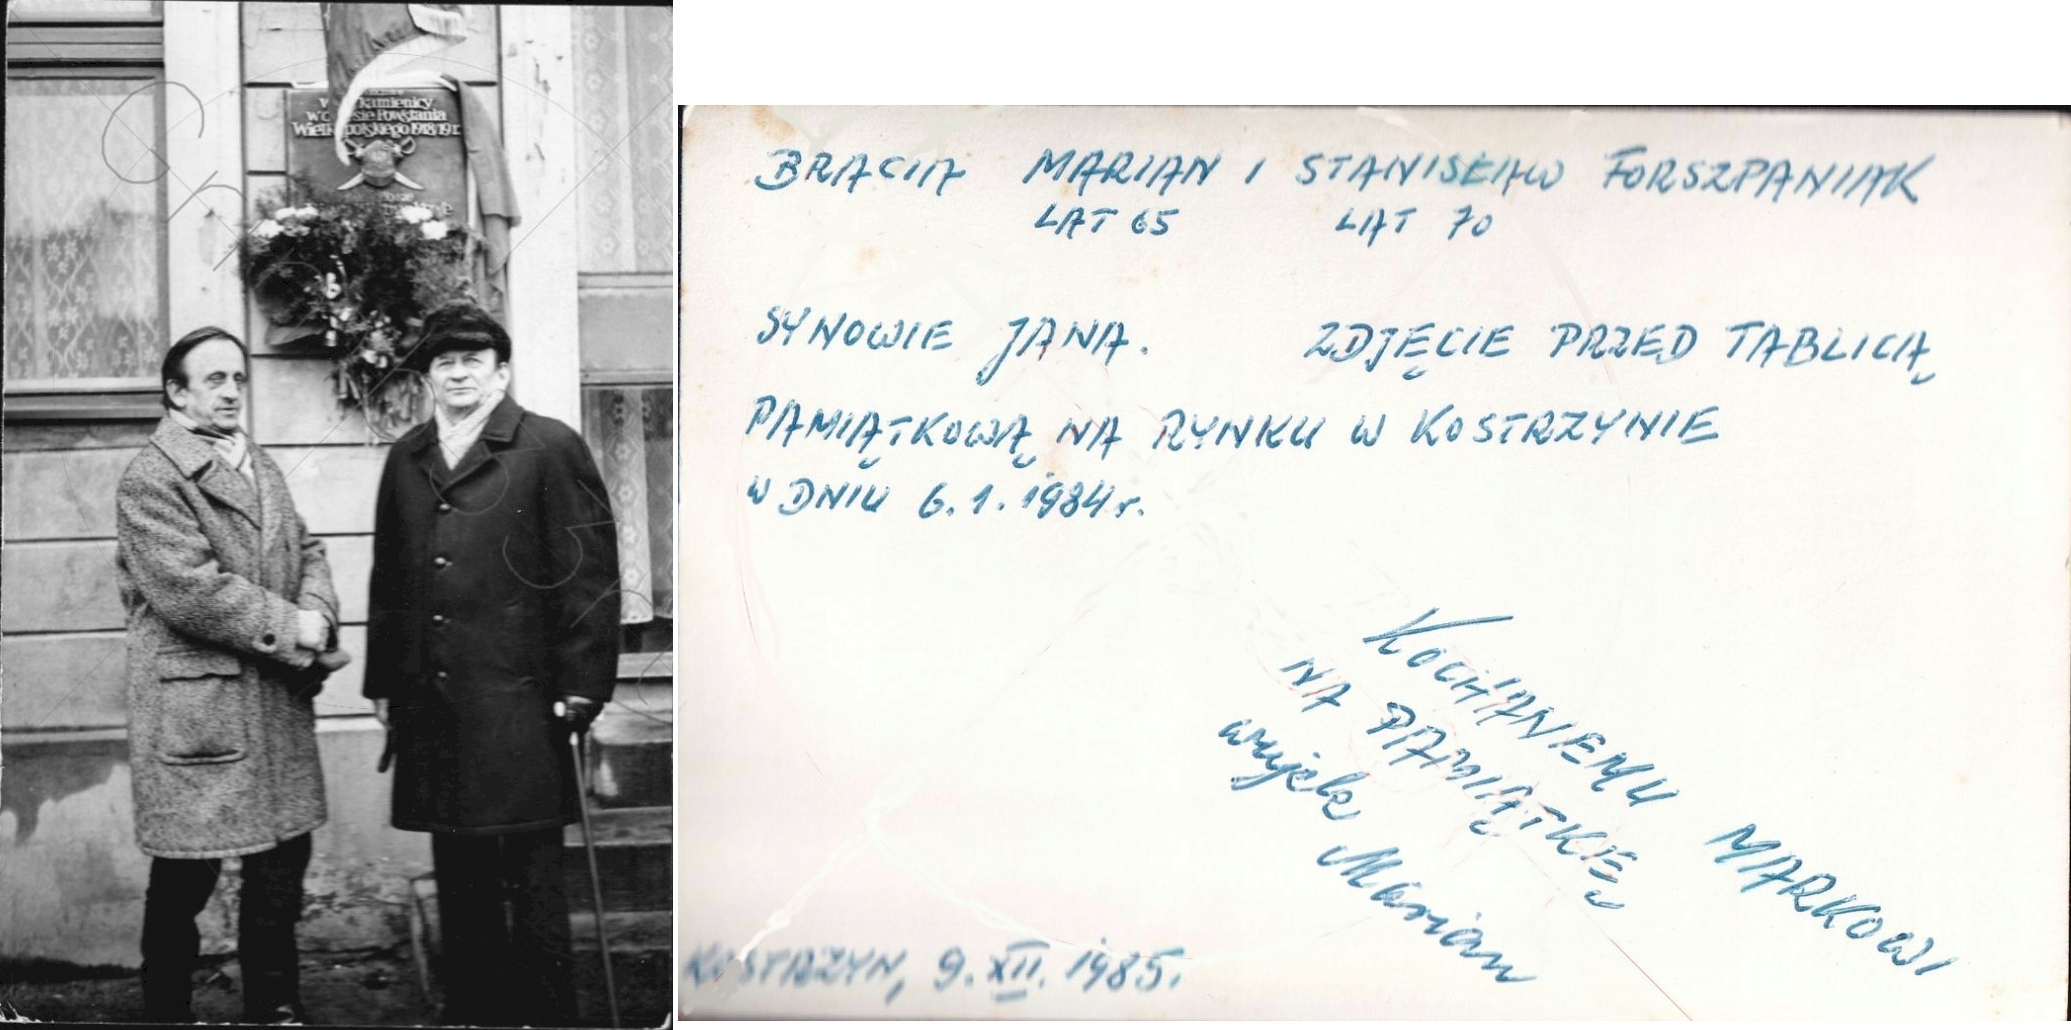 kamienicy
Powstania
1918/19 r.
BRACIA MARIAN I STANISŁAW FORSZPANIAK
LAT 65 LAT 70
SYNOWIE JANA. ZDJĘCIE PRZED TABLICĄ
PAMIĄTKOWĄ NA RYNKU W KOSTRZYNIE
W DNIU 6.1.1984r.
KOCHANEMU MARKOWI
NA PAMIĄTKĘ
wujek Marian
KOSTRZYN, 9.XII.1985.